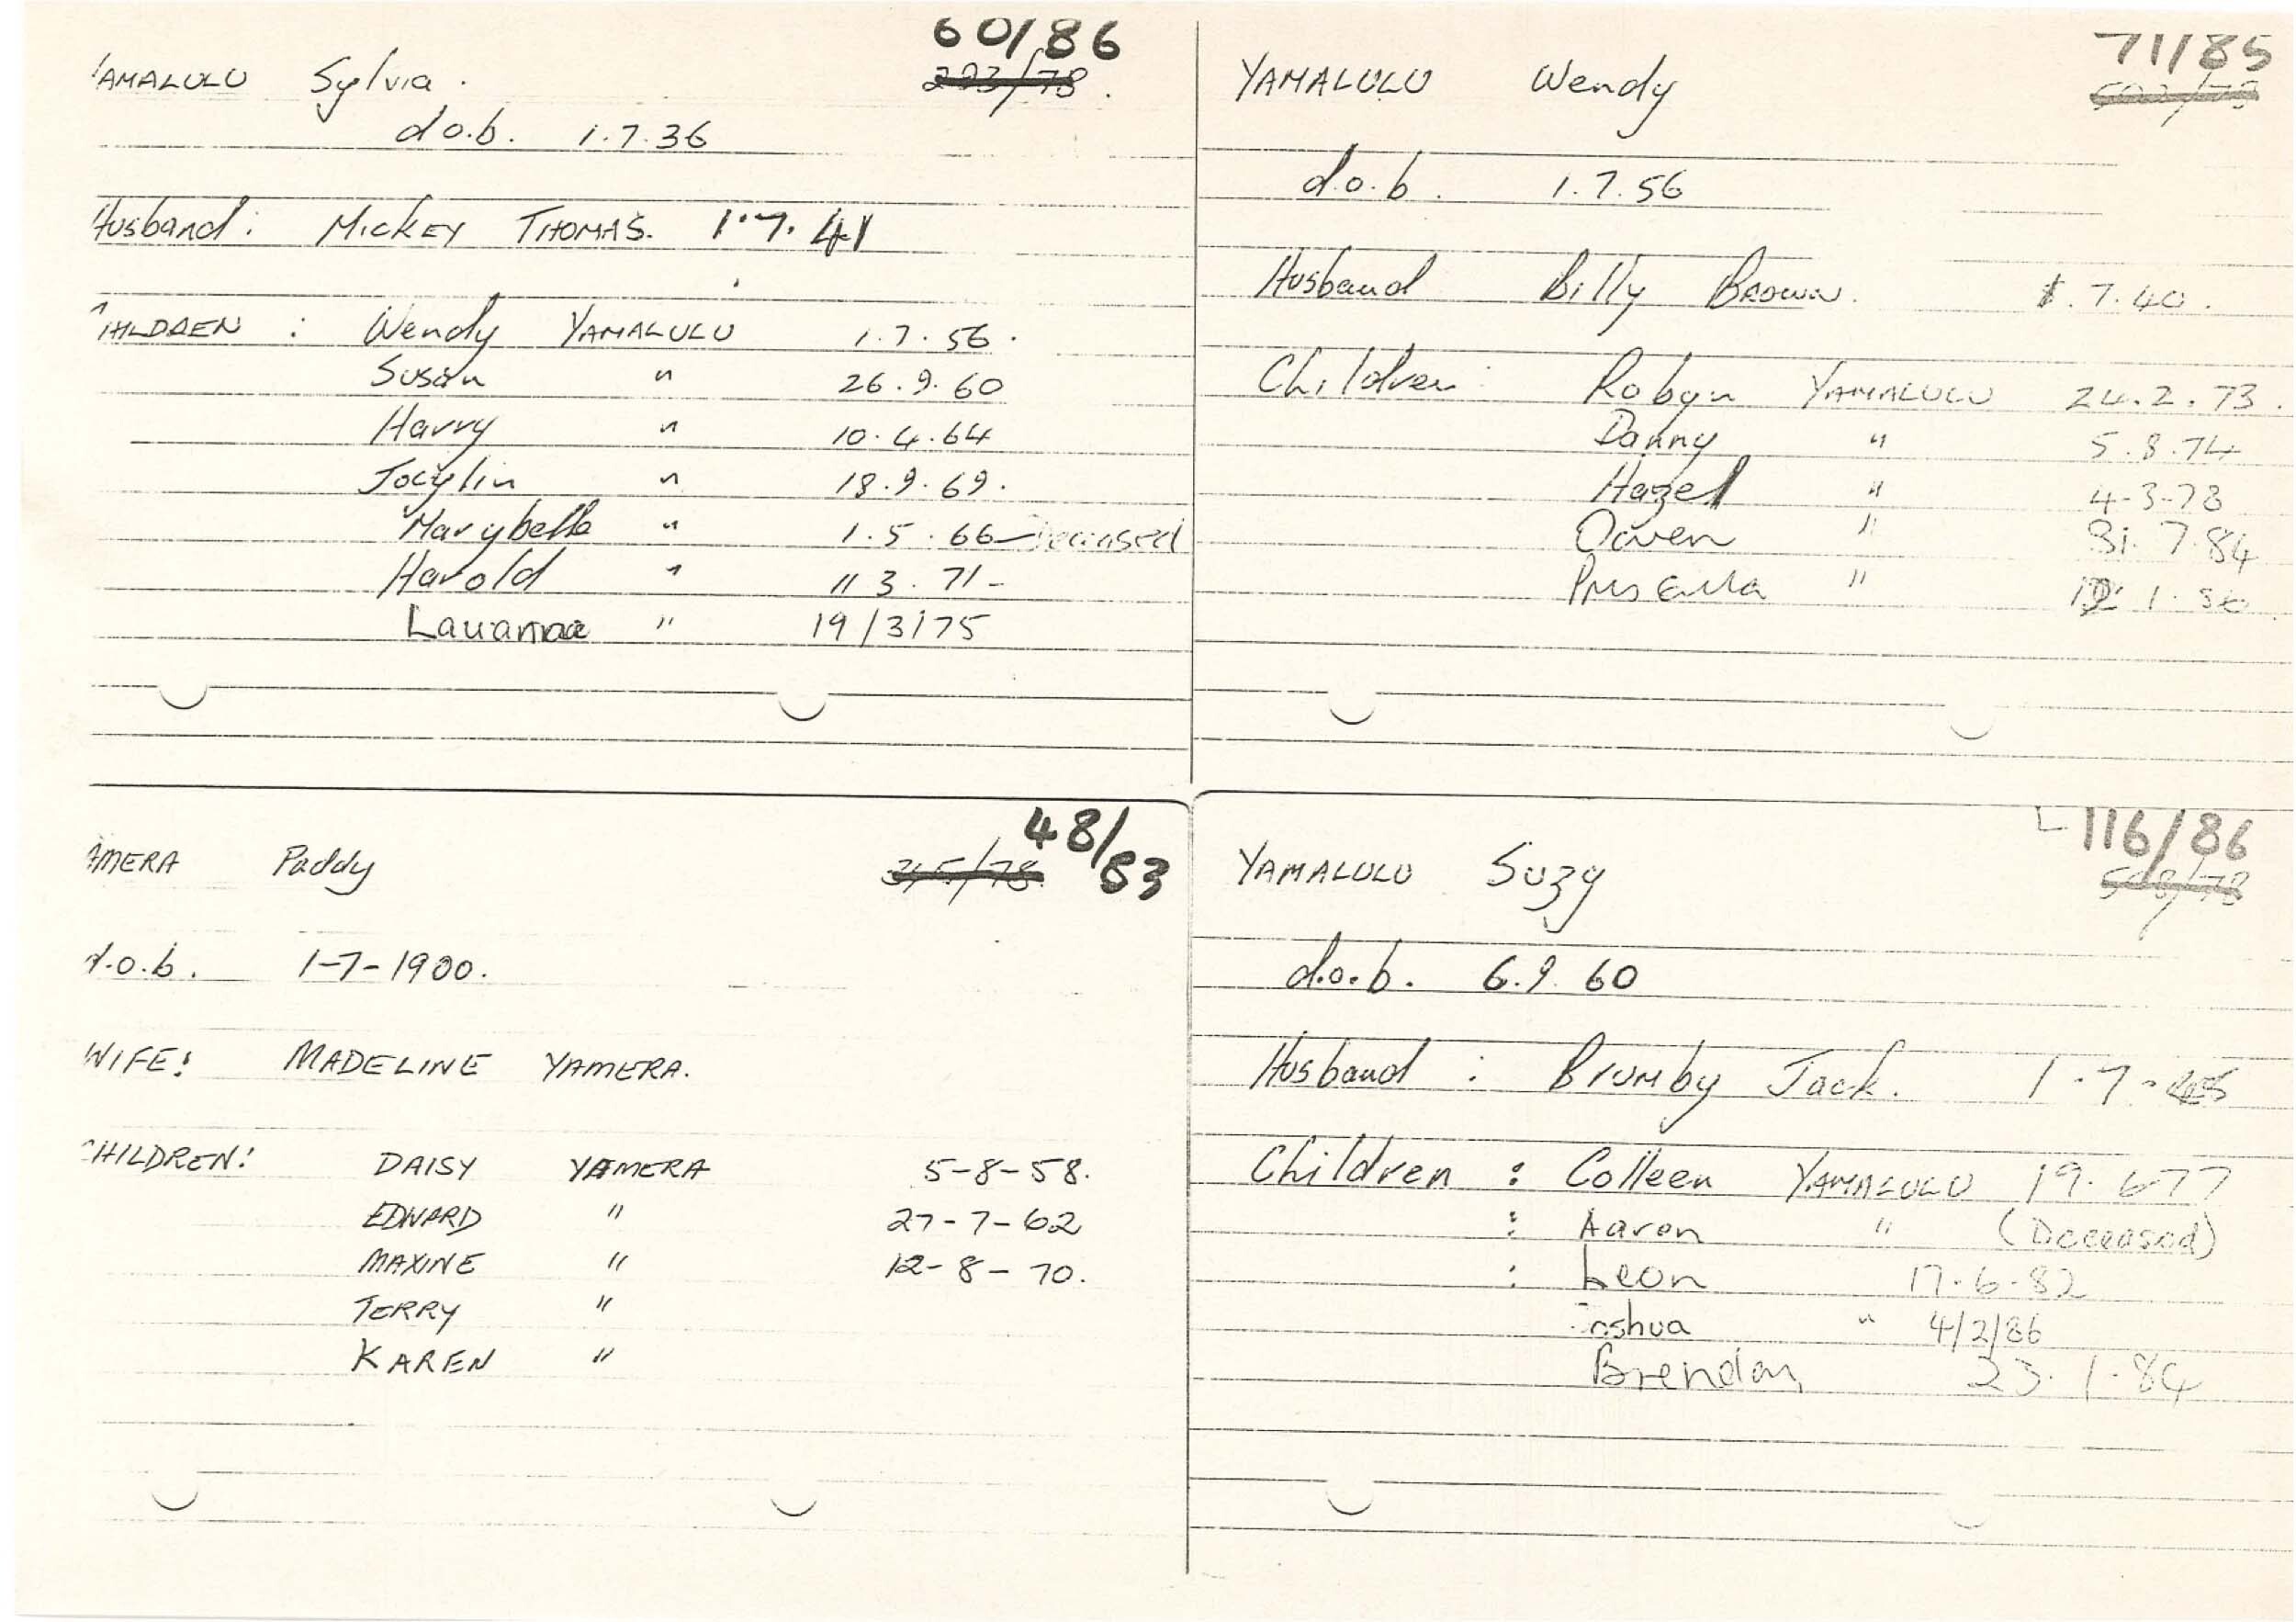 60/86
AMALULU Sylvia.
d.o.b. 1.7.36
Husband: MICKEY THOMAS. 1.7.41
HILDREN : Wendy YAMALULU 1.7.56.
Susan " 26.9.60
Harry " 10.4.64
Jocylin " 18.9.69.
Marybelle " 1.5.66 - Deceased
Harold " 11 3.71-
Lauanna " 19/3/75
71/85
YAMALULU Wendy
d.o.b. 1.7.56
Husband Billy BROWN. 1.7.40.
Children: Robyn YAMALULU 24.2.73.
Danny " 5.8.74
Hazel " 4-3-78
Owen " 31.7.84
Priscilla " 1.86
48/83
AMERA Paddy
d.o.b. 1-7-1900.
WIFE: MADELINE YAMERA.
CHILDREN: DAISY YAMERA 5-8-58.
EDWARD " 27-7-62
MAXINE " 12-8-70.
TERRY "
KAREN "
116/86
YAMALULU Suzy
508/78
d.o.b. 6.9.60
Husband : Brumby Jack. 1.7.45
Children : Colleen YAMALULU 19.6 77
: Aaron " (Deceased)
: Leon 17.6.82
oshua " 4/2/86
Brendan 23.1.84